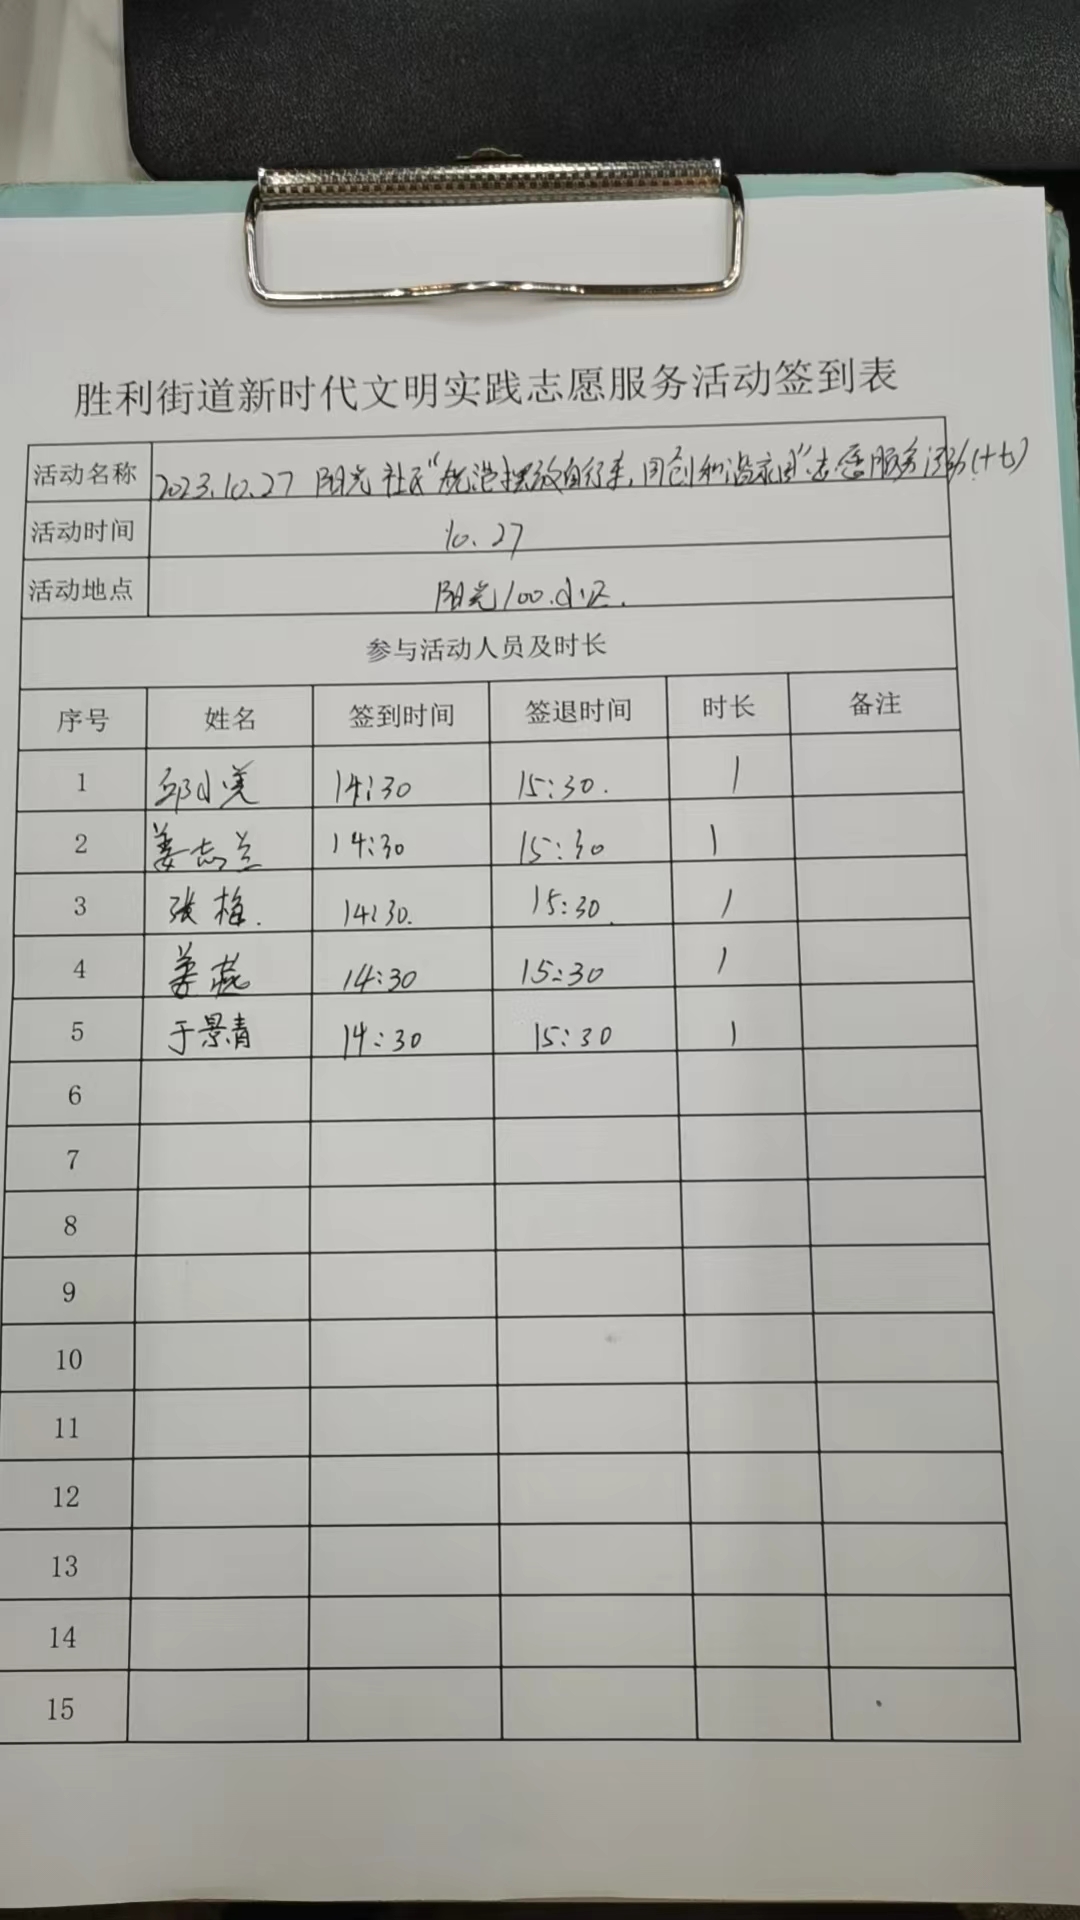 胜利街道新时代文明实践志愿服务活动签到表
活动名称 2023.10.27 阳光社区“规范摆放自行车,同创和谐家园”志愿服务活动(十七)
活动时间 10.27
活动地点 阳光100.小区.
参与活动人员及时长
序号 姓名 签到时间 签退时间 时长 备注
1 邱小 14:30 15:30. 1
2 姜志兰 14:30 15:30 1
3 张梅. 14:30. 15:30. 1
4 姜燕 14:30 15:30 1
5 于景青 14:30 15:30 1
6
7
8
9
10
11
12
13
14
15